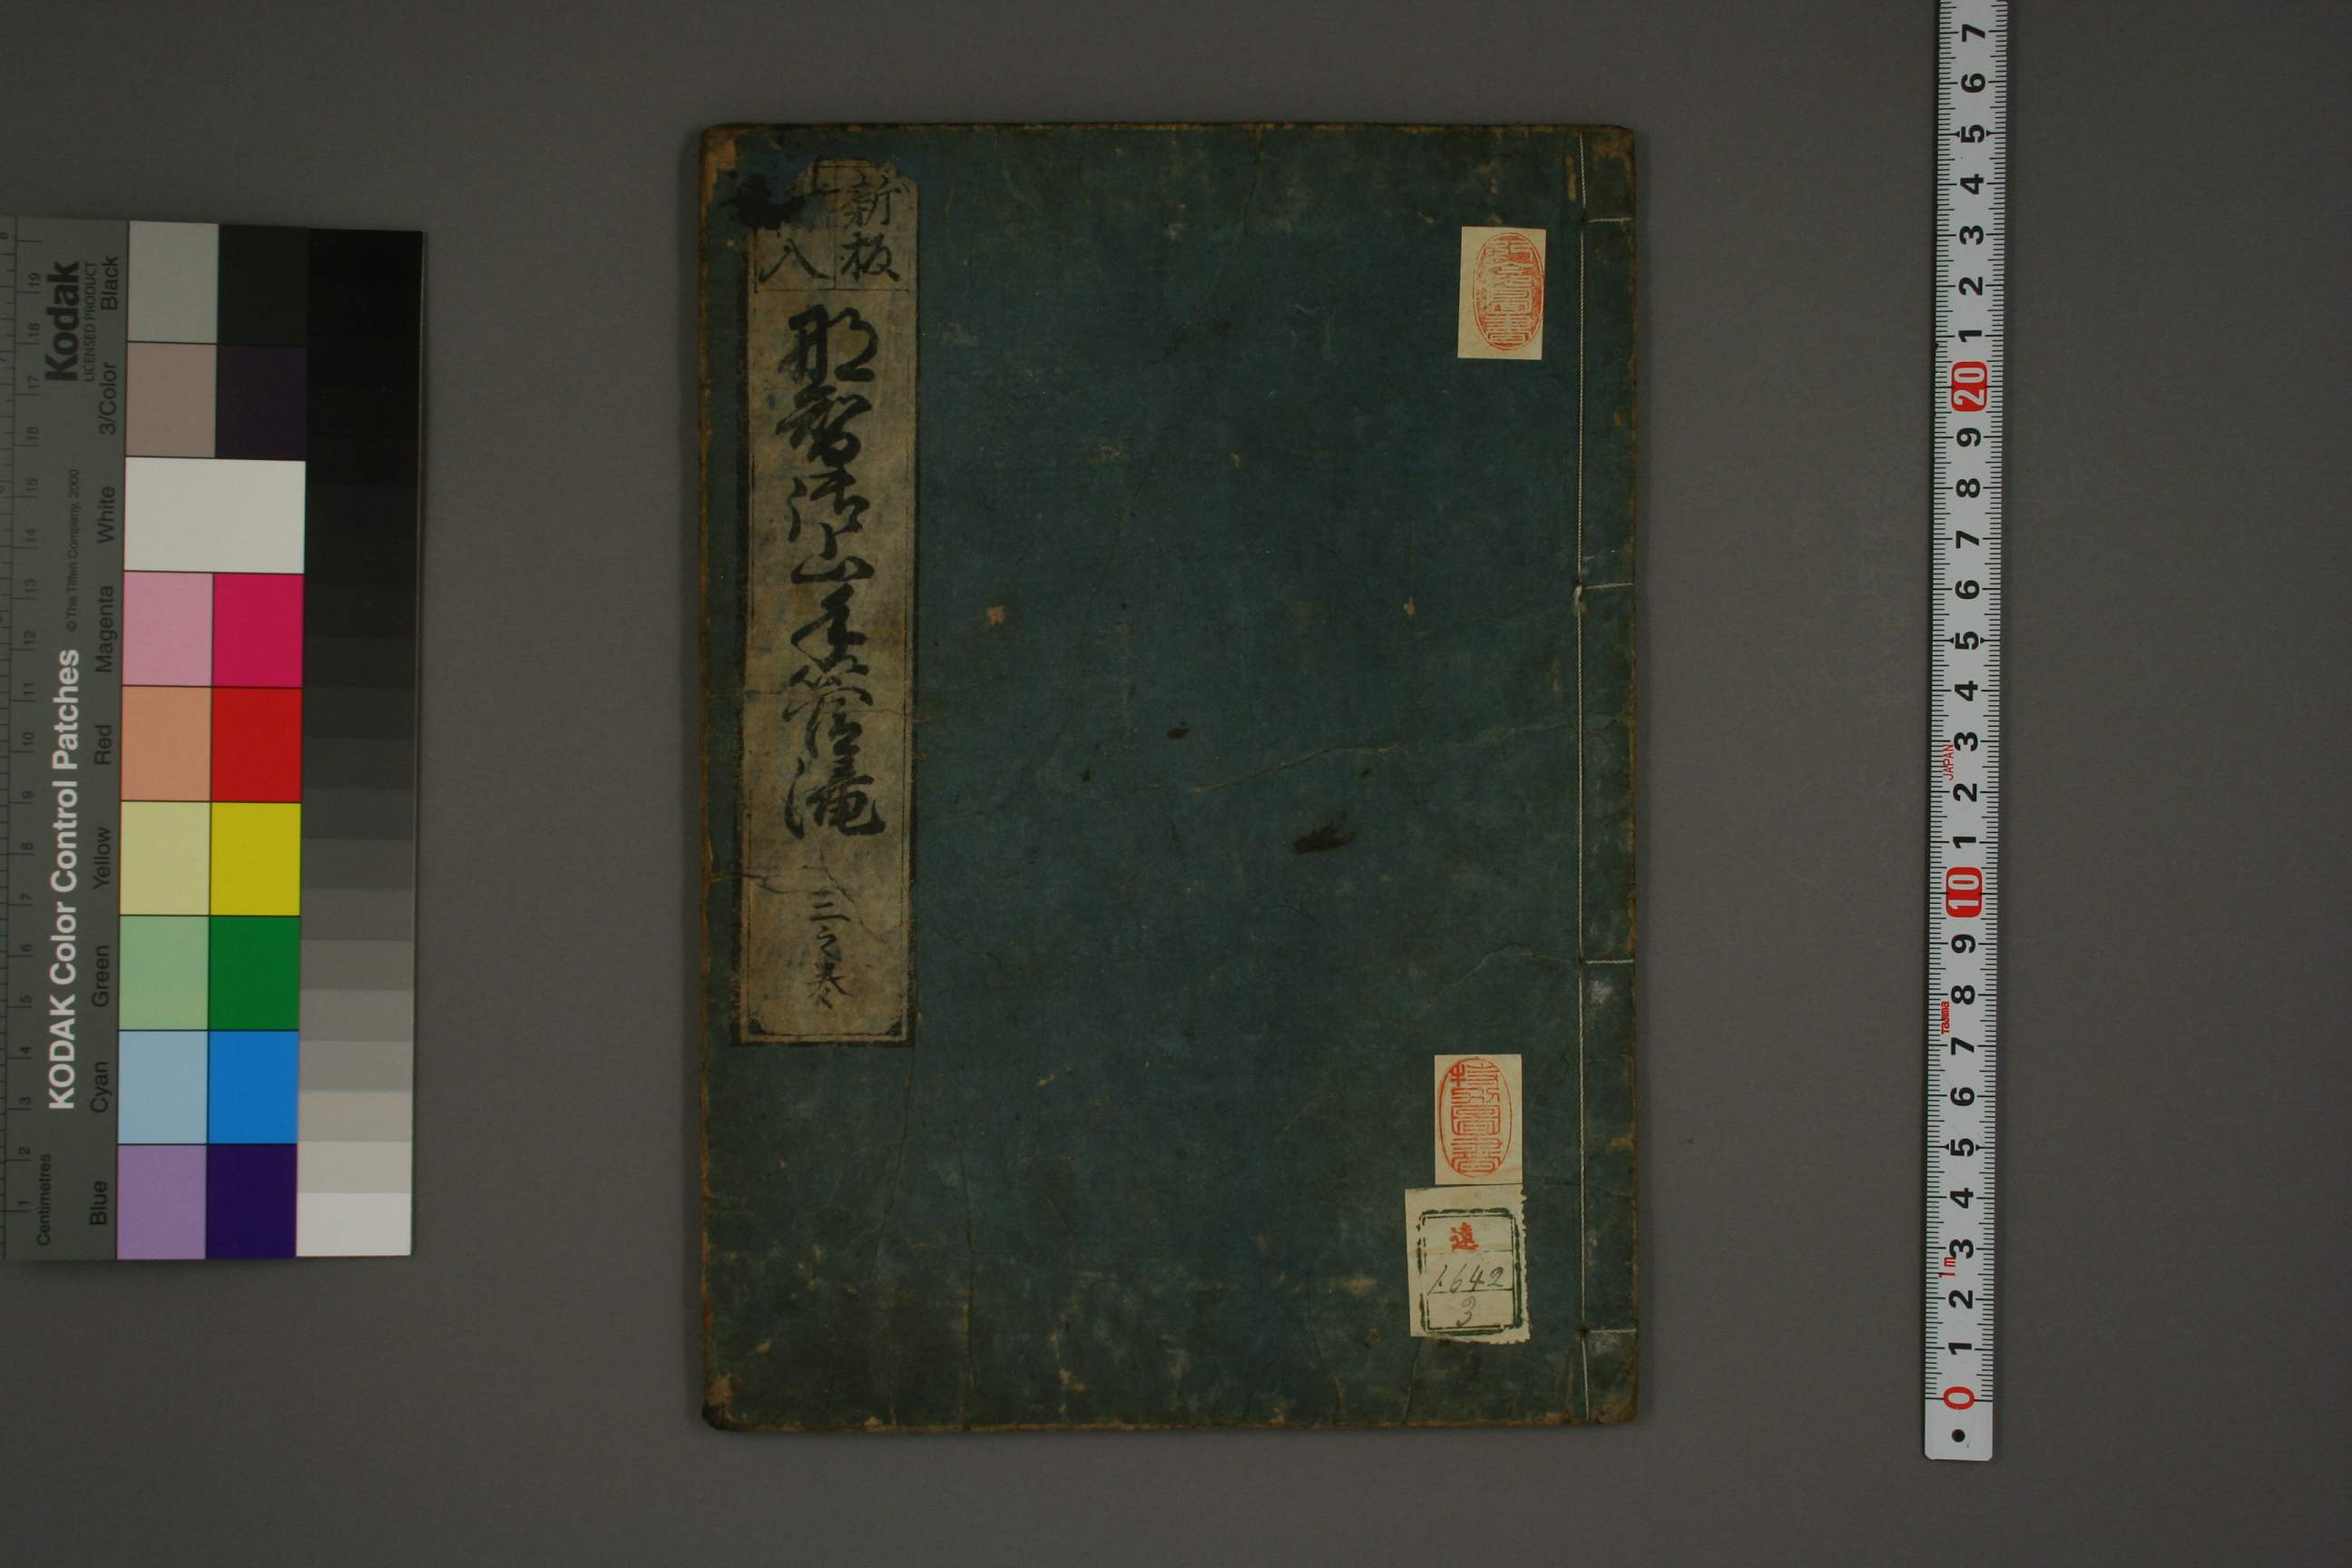 新板
八
那智御山手管滝
三之巻
遠
1642
3
KODAK Color Control Patches
© The Tiffen Company, 2000
Kodak
LICENSED PRODUCT
Centimetres
Blue
Cyan
Green
Yellow
Red
Magenta
White
3/Color
Black
1 2 3 4 5 6 7 8 9 10 11 12 13 14 15 16 17 18 19
7
6
5
4
3
2
1
20
9
8
7
6
5
4
3
JAPAN
2
1
10
9
8
Tajima
7
6
5
4
3
1m
2
1
0